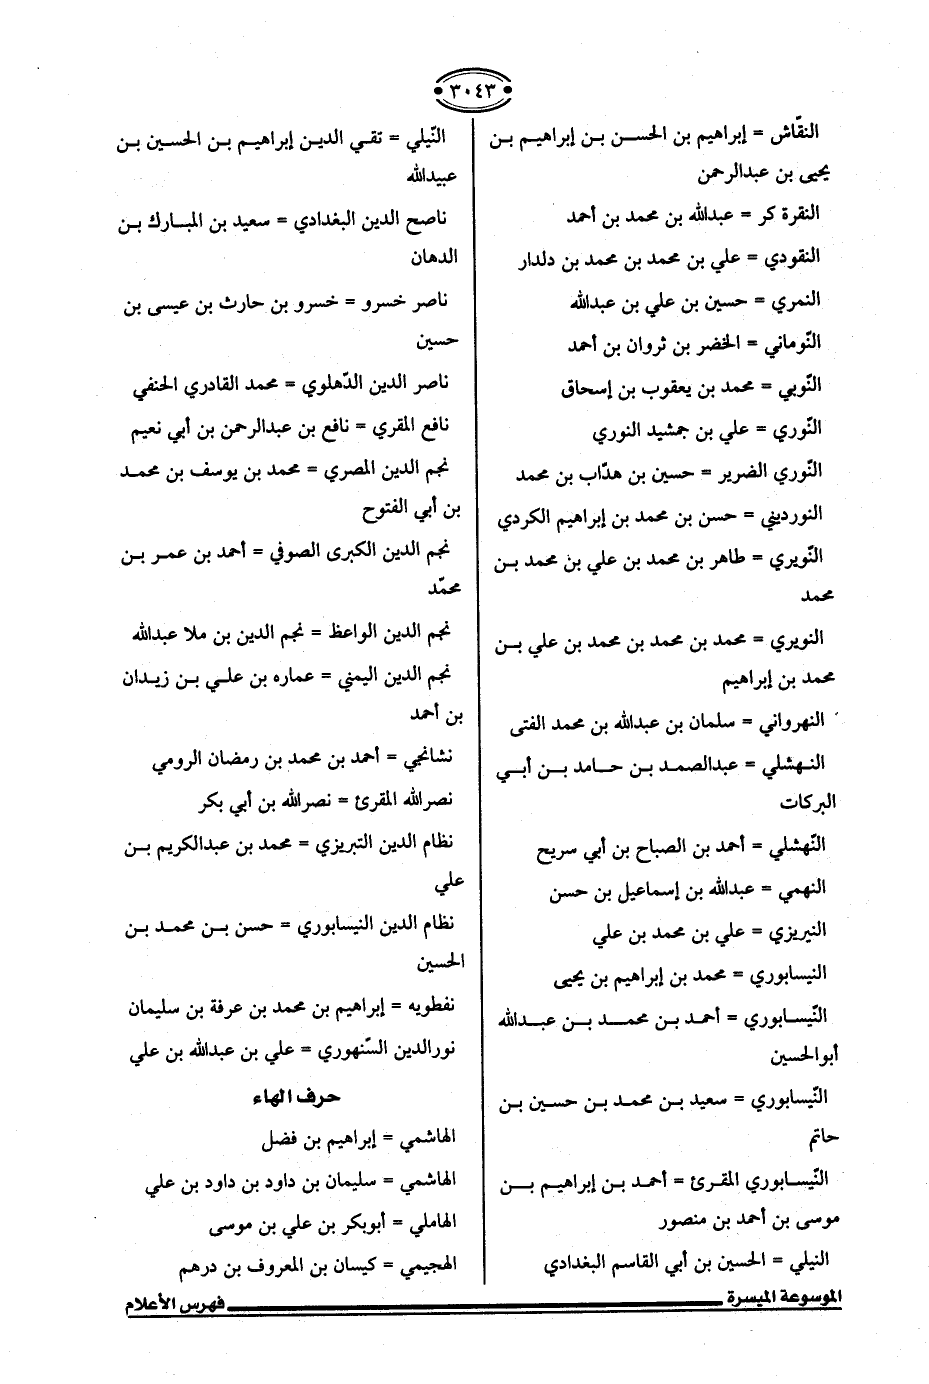 ٣٠٤٣
النقّاش = إبراهيم بن الحسن بن إبراهيم بن
يحيى بن عبدالرحمن
النقرة كر = عبدالله بن محمد بن أحمد
النقودي = علي بن محمد بن محمد بن دلدار
النمري = حسين بن علي بن عبدالله
النّوماني = الخضر بن ثروان بن أحمد
النّوبي = محمد بن يعقوب بن إسحاق
النّوري = علي بن جمشيد النوري
النّوري الضرير = حسين بن هدّاب بن محمد
النورديني = حسن بن محمد بن إبراهيم الكردي
النّويري = طاهر بن محمد بن علي بن محمد بن
محمد
النويري = محمد بن محمد بن محمد بن علي بن
محمد بن إبراهيم
النهرواني = سلمان بن عبدالله بن محمد الفتى
النهشلي = عبدالصمد بن حامد بن أبي
البركات
النّهشلي = أحمد بن الصباح بن أبي سريح
النهمي = عبدالله بن إسماعيل بن حسن
النيريزي = علي بن محمد بن علي
النيسابوري = محمد بن إبراهيم بن يحيى
النّيسابوري = أحمد بن محمد بن عبدالله
أبوالحسين
النّيسابوري = سعيد بن محمد بن حسين بن
حاتم
النّيسابوري المقرئ = أحمد بن إبراهيم بن
موسى بن أحمد بن منصور
النيلي = الحسين بن أبي القاسم البغدادي
النّيلي = تقي الدين إبراهيم بن الحسين بن
عبيدالله
ناصح الدين البغدادي = سعيد بن المبارك بن
الدهان
ناصر خسرو = خسرو بن حارث بن عيسى بن
حسين
ناصر الدين الدّهلوي = محمد القادري الحنفي
نافع المقري = نافع بن عبدالرحمن بن أبي نعيم
نجم الدين المصري = محمد بن يوسف بن محمد
بن أبي الفتوح
نجم الدين الكبرى الصوفي = أحمد بن عمر بن
محمّد
نجم الدين الواعظ = نجم الدين بن ملا عبدالله
نجم الدين اليمني = عماره بن علي بن زيدان
بن أحمد
نشانجي = أحمد بن محمد بن رمضان الرومي
نصرالله المقرئ = نصرالله بن أبي بكر
نظام الدين التبريزي = محمد بن عبدالكريم بن
علي
نظام الدين النيسابوري = حسن بن محمد بن
الحسين
نفطويه = إبراهيم بن محمد بن عرفة بن سليمان
نورالدين السّنهوري = علي بن عبدالله بن علي
حرف الهاء
الهاشمي = إبراهيم بن فضل
الهاشمي = سليمان بن داود بن داود بن علي
الهاملي = أبوبكر بن علي بن موسى
الهجيمي = كيسان بن المعروف بن درهم
الموسوعة الميسرة فهرس الأعلام